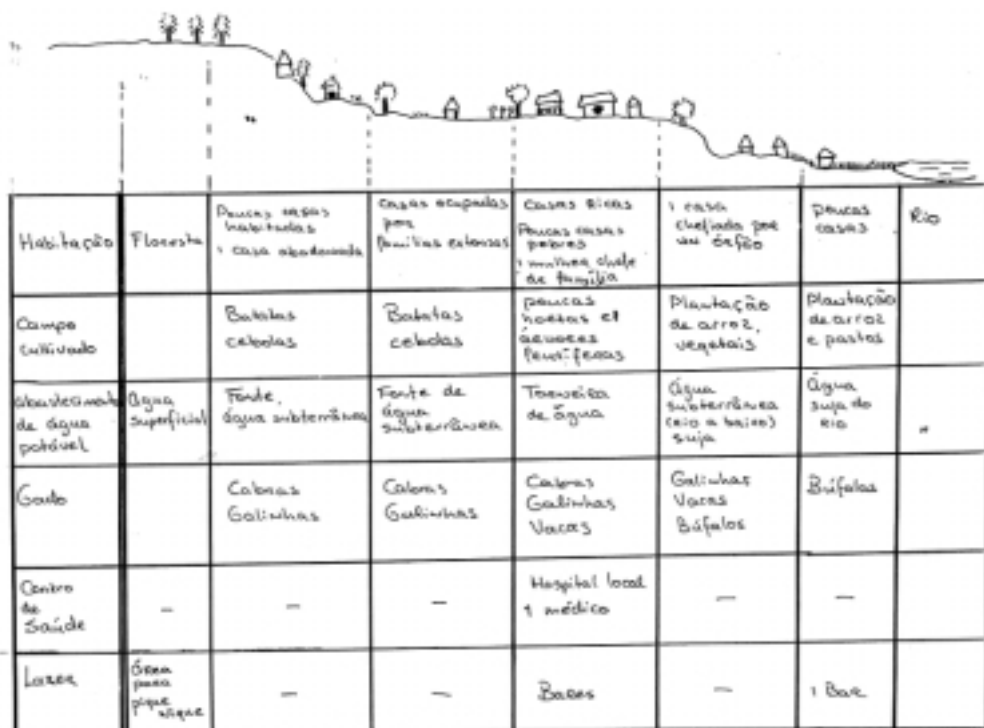 Habitação
Floresta
Poucas casas
habitadas
1 casa abadonada
casas ocupadas
por
famílias extensas
Casas Ricas
Poucas casas
pobres
1 mulher chefe
de família
1 casa
chefiada por
um órfão
poucas
casas
Rio
Campo
cultivado
Batatas
cebolas
Batatas
cebolas
poucas
hortas e
árvores
frutíferas
Plantação
de arroz,
vegetais
Plantação
de arroz
e pastos
abastecimento
de água
potável
água
superficial
Fonte,
água subterrânea
Fonte de
água
subterrânea
Torneira
de água
Água
subterrânea
(rio a baixo)
suja
Água
suja do
rio
Gado
Cabras
Galinhas
Cabras
Galinhas
Cabras
Galinhas
Vacas
Galinhas
Vacas
Búfalos
Búfalos
Centro
de
Saúde
–
–
–
Hospital local
1 médico
–
–
Lazer
Área
para
pique
nique
–
–
Bares
–
1 Bar